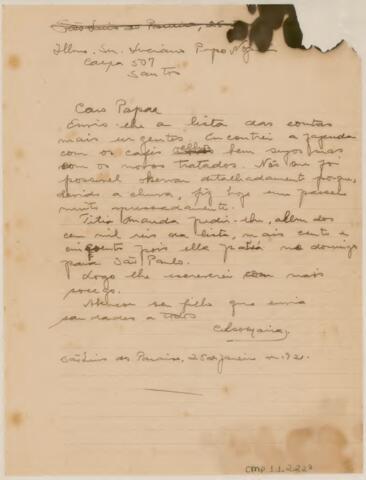 São Luis do Paraiso, 25
Illmo. Snr. Luciano
Caixa 507
Santos
Caro Papae
Envio-lhe a lista das contas
mais urgentes. Encontrei a fazenda
com os cafés bem sujos mas
com os novos tratados. Não me foi
possivel observar detalhadamente porque,
devido a chuva, fiz hoje um passeio
muito apressadamente.
Titia Amanda pediu-lhe, alem dos
cem mil reis da lista, mais cento e
cincoenta pois ella no domingo
para São Paulo.
Logo lhe escreverei com mais
socego.
seu filho que envia
saudades a todos
São Luis do Paraiso, 25 de janeiro
CMP 1.1.2.223